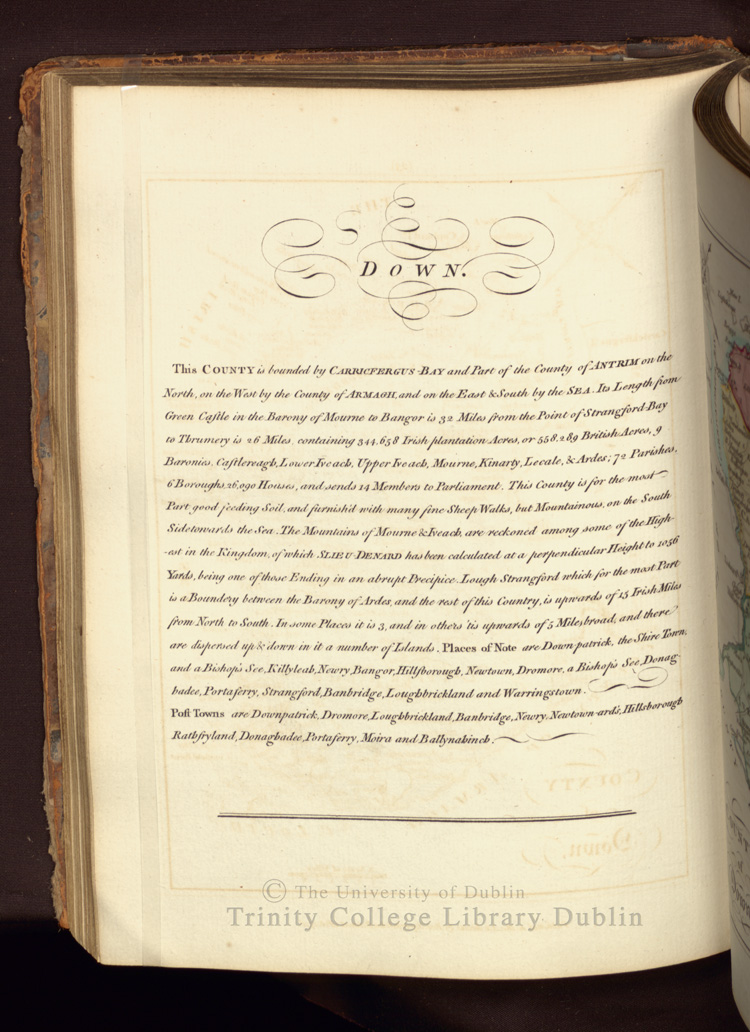 DOWN.
This COUNTY is bounded by CARRICFERGUS-BAY and Part of the County of ANTRIM on the
North, on the West by the County of ARMAGH, and on the East & South by the SEA. Its Length from
Green Castle in the Barony of Mourne to Bangor is 32 Miles from the Point of Strangford-Bay
to Thrumery is 26 Miles, containing 344,658 Irish plantation Acres, or 558,289 British Acres, 9
Baronies, Castlereagh, Lower Iveach, Upper Iveach, Mourne, Kinarty, Lecale, & Ardes; 72 Parishes,
6 Boroughs, 26,090 Houses, and sends 14 Members to Parliament. This County is for the most
Part good feeding Soil, and furnish'd with many fine Sheep Walks, but Mountainous, on the South
Side towards the Sea. The Mountains of Mourne & Iveach, are reckoned among some of the High-
-est in the Kingdom, of which SLIEU-DENARD has been calculated at a perpendicular Height to 1056
Yards, being one of those Ending in an abrupt Precipice. Lough Strangford which for the most Part
is a Boundery between the Barony of Ardes, and the rest of this Country, is upwards of 15 Irish Miles
from North to South. In some Places it is 3, and in others 'tis upwards of 5 Miles broad, and there
are dispersed up & down in it a number of Islands. Places of Note are Down patrick, the Shire Town,
and a Bishop's See, Killyleah, Newry, Bangor, Hillsborough, Newtown, Dromore, a Bishop's See, Donag-
hadee, Portaferry, Strangford, Banbridge, Loughbrickland and Warringstown.
Post Towns are Downpatrick, Dromore, Loughbrickland, Banbridge, Newry, Newtown-ard's, Hillsborough
Rathfryland, Donaghadee, Portaferry, Moira and Ballynahinch.
© The University of Dublin
Trinity College Library Dublin